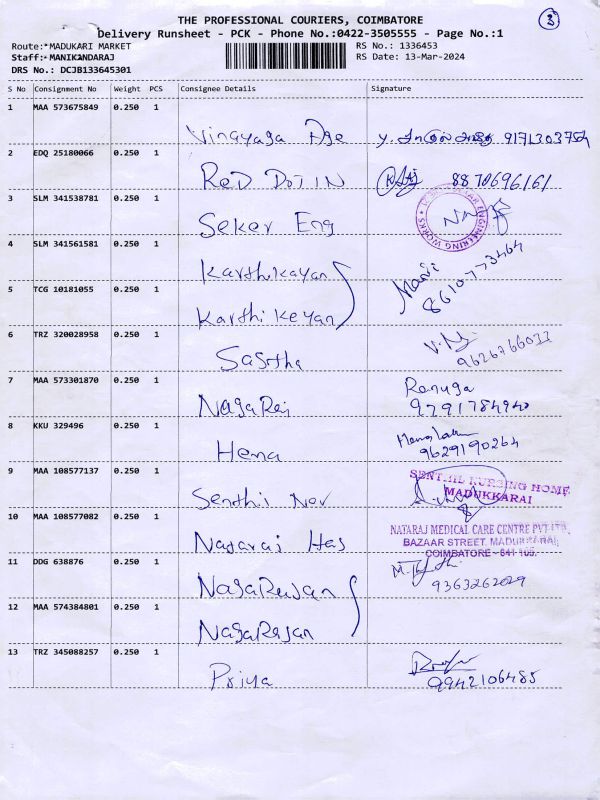 THE PROFESSIONAL COURIERS, COIMBATORE
Delivery Runsheet - PCK - Phone No.:0422-3505555 - Page No.:1
3
Route:*MADUKARI MARKET
Staff:*MANIKANDARAJ
DRS No.: DCJB133645301
RS No.: 1336453
RS Date: 13-Mar-2024
S No Consignment No Weight PCS Consignee Details Signature
1 MAA 573675849 0.250 1
Vinayaga Age 9171303754
2 EDQ 25180066 0.250 1
ReD DoT IN 8870696161
3 SLM 341538781 0.250 1
Seker Eng
ENGINEERING WORKS
4 SLM 341561581 0.250 1
Karthikayan
Mani
8610773464
5 TCG 10181055 0.250 1
Karthi Keyan
6 TRZ 320028958 0.250 1
Sasrtha
9626766033
7 MAA 573301870 0.250 1
NagaRaj
Renuga
9791784940
8 KKU 329496 0.250 1
Hema
9629190264
9 MAA 108577137 0.250 1
Senthi Nor
SENTHIL NURSING HOME
MADUKKARAI
10 MAA 108577082 0.250 1
Nagaraj Has
NATARAJ MEDICAL CARE CENTRE PVT LTD,
BAZAAR STREET, MADUKKARAI,
COIMBATORE - 641 105.
11 DDG 638876 0.250 1
NagaRajan
9363262029
12 MAA 574384801 0.250 1
NagaRajan
13 TRZ 345088257 0.250 1
Priya
9942106485